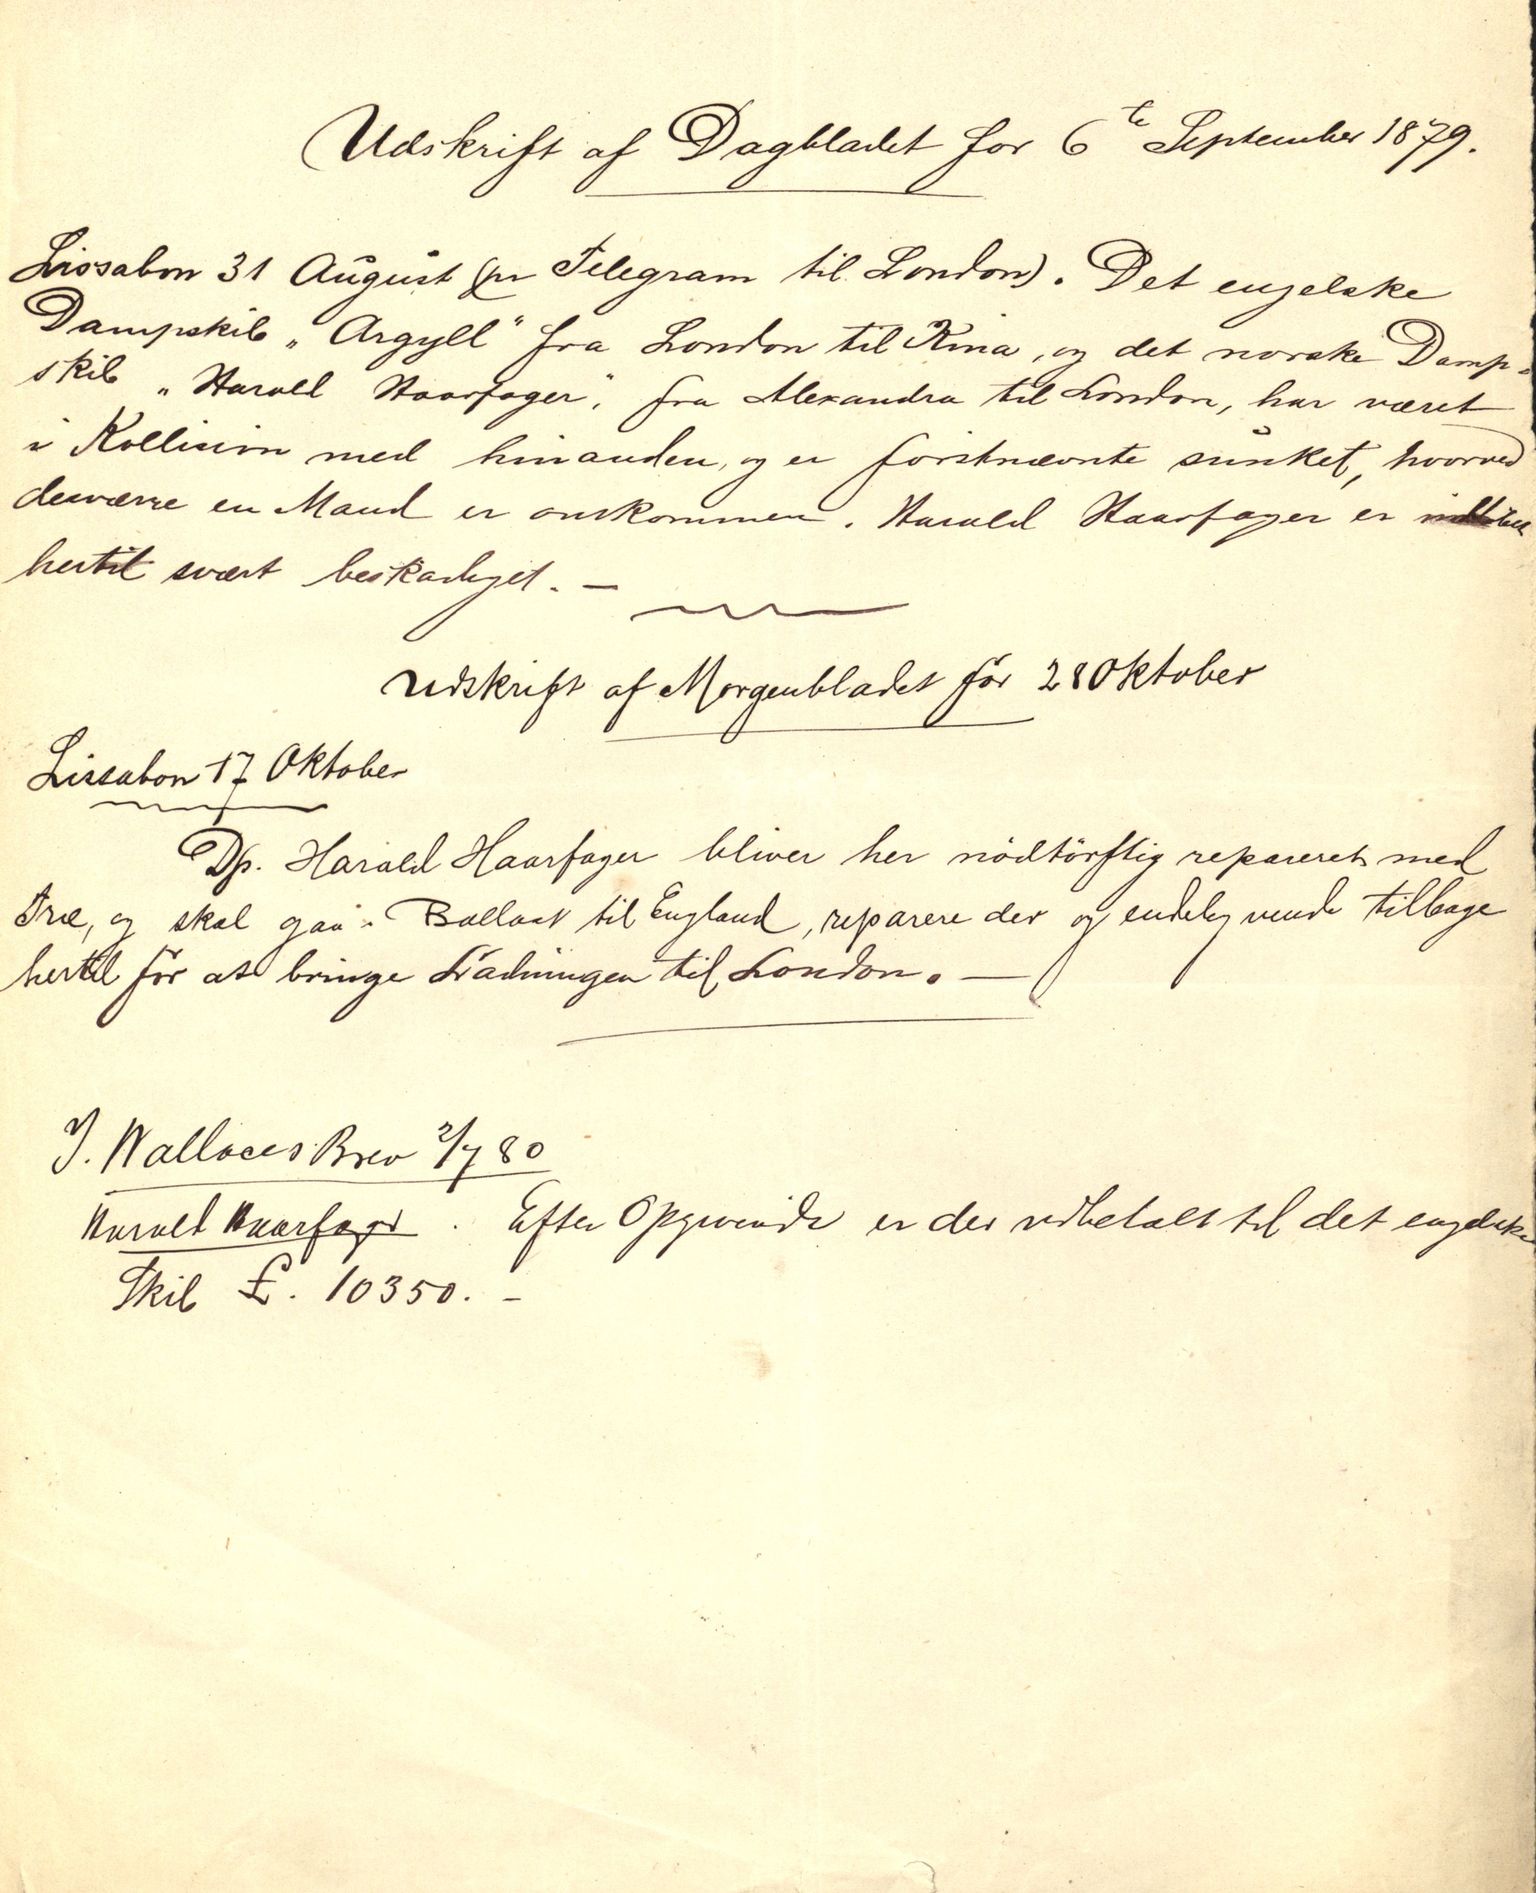 Udskrift af Dagbladet for 6te September 1879.
Lissabon 31 August (pr Telegram til London). Det engelske
Dampskib „Argyll" fra London til Kina, og det norske Damp-
skib „Harald Haarfager", fra Alexandra til London, har været
i Kollision med hinanden, og er förstnævnte sunket, hvorved
desværre en Mand er omkommen. Harald Haarfager er
hertil svært beskadiget. —
Udskrift af Morgenbladet för 28 Oktober
Lissabon 17 Oktober
Dp. Harald Haarfager bliver her nödtörftig repareret med
Træ, og skal gaa i Ballast til England, reparere der og endelig vende tilbage
hertil för at bringe Ladningen til London. —
J. Wallaces Brev 2/7 80
Harald Haarfager. Efter Opgivende er der udbetalt til det engelske
Skib £. 10350. —